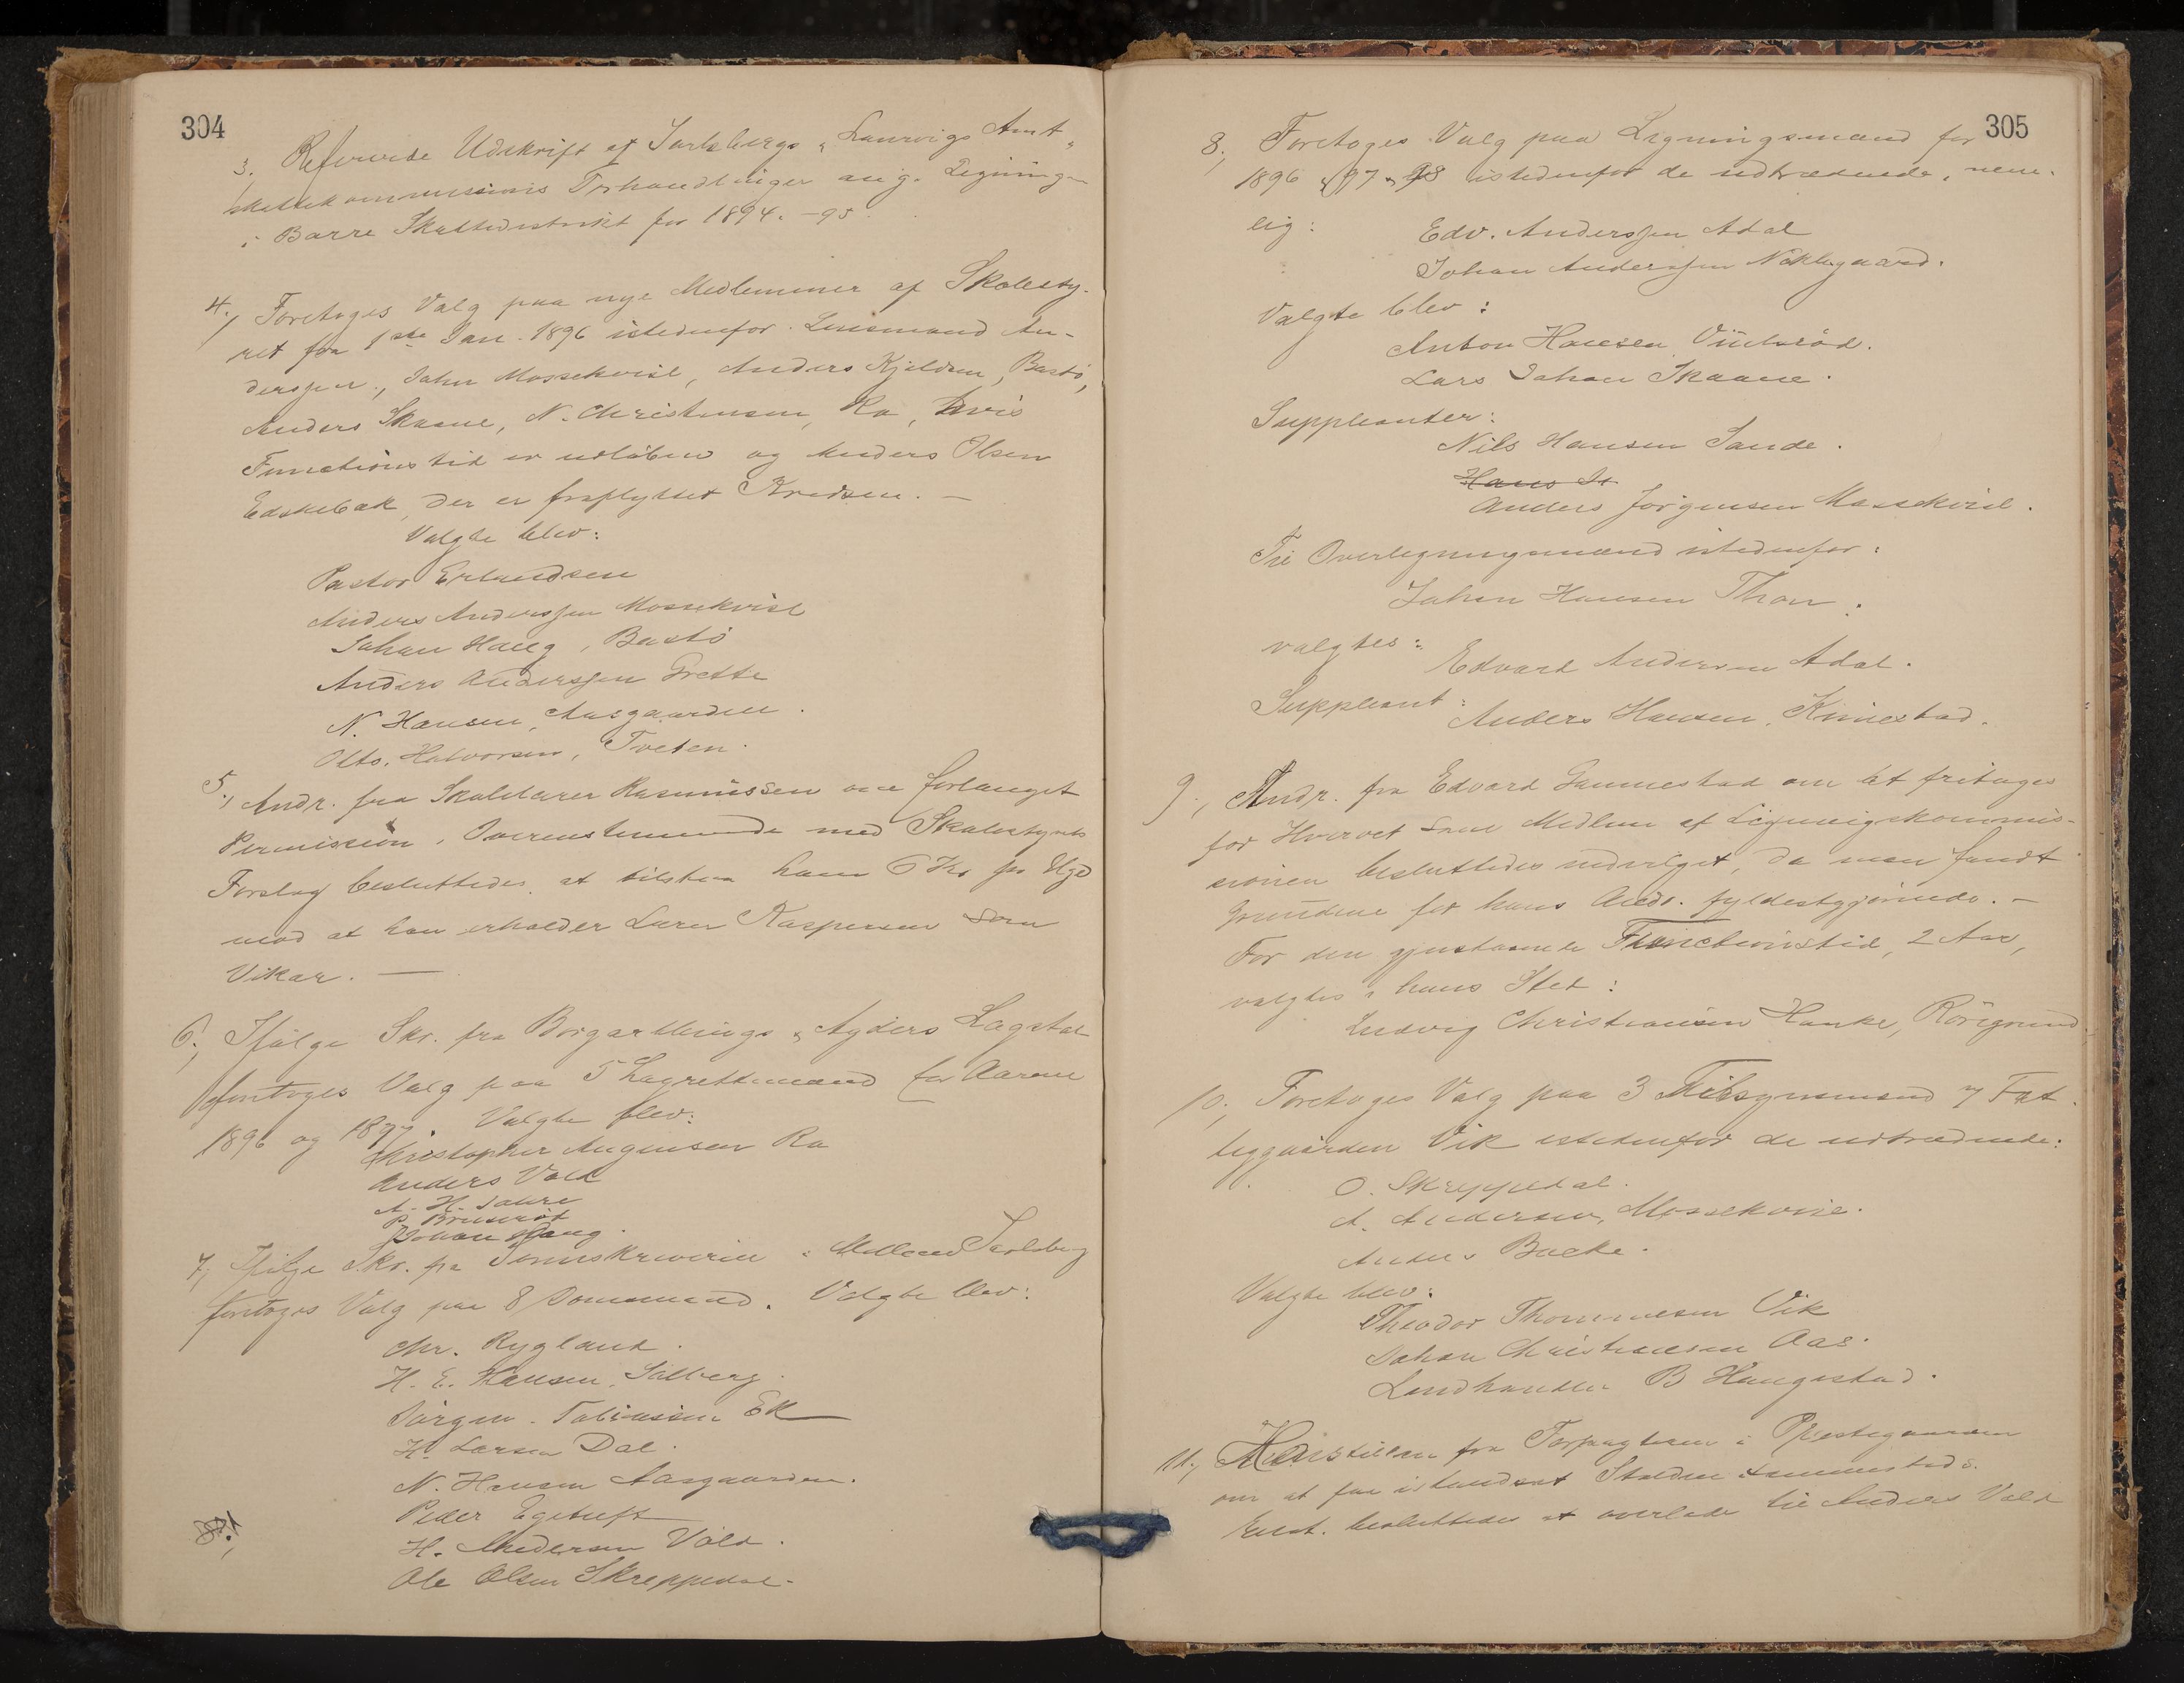 304
3. Refererede Udskrift af Jarlsbergs & Laurvigs Amts
skattekommissions Forhandlinger ang. Ligningen
i Borre Skattedistrikt for 1894-95.
4., Foretoges Valg paa nye Medlemmer af Skolesty-
ret fra 1ste Jan. 1896 istedenfor Lensmand An-
derssen, John Mossekvisl, Anders Kjeldsen, Bastö,
Anders Skaane, N. Christensen, Ra, hvis
Functionstid er udlöben og Anders Olsen
Edskebæk, der er fraflyttet Kredsen. —
Valgte blev:
Pastor Erlandsen
Anders Anderssen Mossekvisl
Johan Haug, Bastö
Anders Anderssen Grette
N. Hansen, Aasgaarden.
Otto Halvorsen, Tveten.
5., Andr. fra Skolelærer Rasmussen om forlænget
Permission. Overensstemmende med Skolestyrets
Forslag besluttedes at tilstaa ham 6 Kr pr Uge
mod at han erholder Lærer Kaspersen som
Vikar. —
6., Ifölge Skr. fra Borgarthings & Agders Lagstol
foretoges Valg paa 5 Lagrettemænd for Aarene
1896 og 1897. Valgte blev:
Christopher Mugensen Ra
Anders Vold
A. H. Sahre
P. Brunsröd
Johan Haug.
7., Ifölge Skr. fra Sorenskriveren i Mellem Jarlsberg
foretoges Valg paa 8 Domsmænd. Valgte blev:
Chr. Rygland.
H. E. Hansen, Solberg.
Jörgen Tobiassen Ek
H. Larsen Dal.
N. Hansen Aasgaarden.
Peder Egetuft
H. Andersen Vold.
Ole Olsen Skreppedal.
8.,
305
8., Foretoges Valg paa Ligningsmænd for
1896 & 97 & 98 istedenfor de udtrædende, nem-
lig:
Edv. Anderssen Adal
Johan Anderssen Nöklegaard.
Valgte blev:
Anton Hansen
Lars Johan Skaane.
Suppleanter:
Nils Hansen Sande.
Hans
Anders Jörgensen Mossekvisl.
Til Overligningsmænd istedenfor:
Johan Hansen Thon.
valgtes:
Edvard Andersen Adal.
Suppleant:
Anders Hansen, Knivestad.
9., Andr. fra Edvard Gannestad om at fritages
for Hvervet som Medlem af Ligningskommis-
sionen besluttedes indvilget, da man fandt
Grundene for hans Andr. fyldestgjörende. —
For den gjenstaaende Functionstid, 2 Aar,
valgtes i hans Sted:
Ludvig Christiansen Hanke, Röregrund
10., Foretoges Valg paa 3 Tilsynsmænd v Fat-
tiggaarden Vik istedenfor de udtrædende:
O. Skreppedal.
A. Andersen, Mossekvisl.
Anders Bakke.
Valgte blev:
Theodor Thommesen Vik
Johan Christiansen Aas.
Landhandler B Haugestad.
11., Henstillen fra Forpagteren i Præstegaarden
om at faa istandsat Stalden sammesteds.
Enst. besluttedes at overlade til Anders Vold